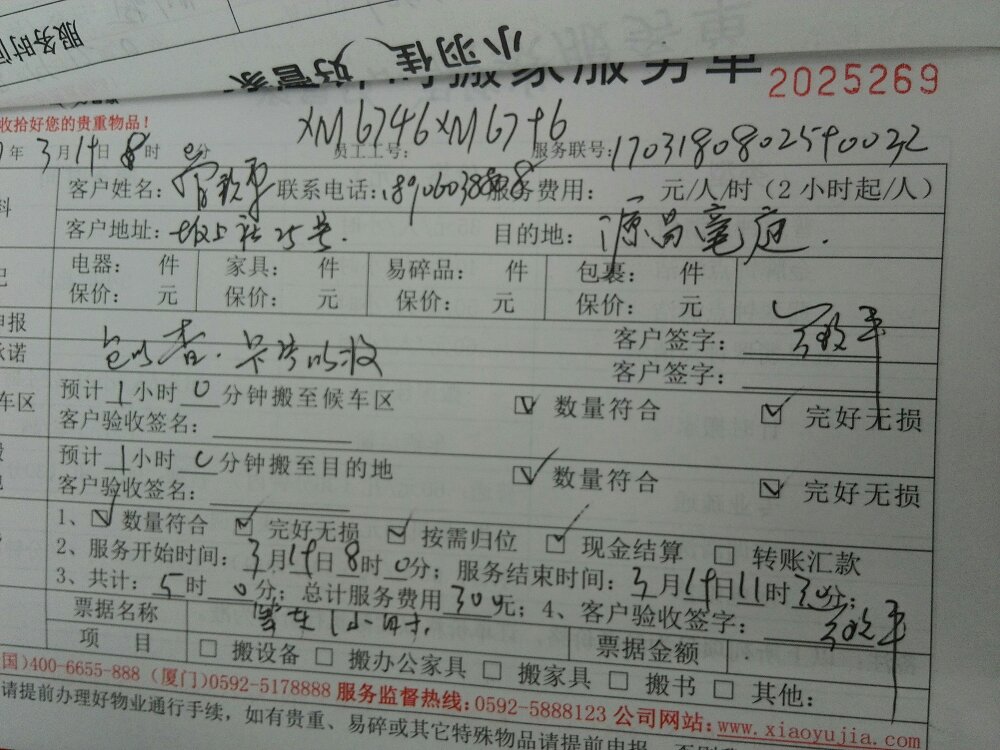 服务时间
小羽佳 好管家
搬家服务单 2025269
收拾好您的贵重物品！
XM6746XM6746
年3月19日8时0分 员工工号： 服务联号：1703180802590032
客户姓名： 联系电话：服务费用： 元/人/时（2小时起/人）
客户地址：坂上社25号. 目的地：源昌豪庭.
电器： 件 家具： 件 易碎品： 件 包裹： 件
保价： 元 保价： 元 保价： 元 保价： 元
申报 客户签字：
承诺 客户签字：
预计1小时0分钟搬至候车区 数量符合 完好无损
车区 客户验收签名：
预计1小时0分钟搬至目的地 数量符合 完好无损
客户验收签名：
1、数量符合 完好无损 按需归位 现金结算 转账汇款
2、服务开始时间：3月19日8时0分；服务结束时间：3月19日11时30分；
3、共计：5时0分；总计服务费用300元；4、客户验收签字：
票据名称 1小时 票据金额
项 目 搬设备 搬办公家具 搬家具 搬书 其他：
国)400-6655-888 (厦门)0592-5178888 服务监督热线:0592-5888123 公司网站:www.xiaoyujia.com
请提前办理好物业通行手续，如有贵重、易碎或其它特殊物品请提前申报，